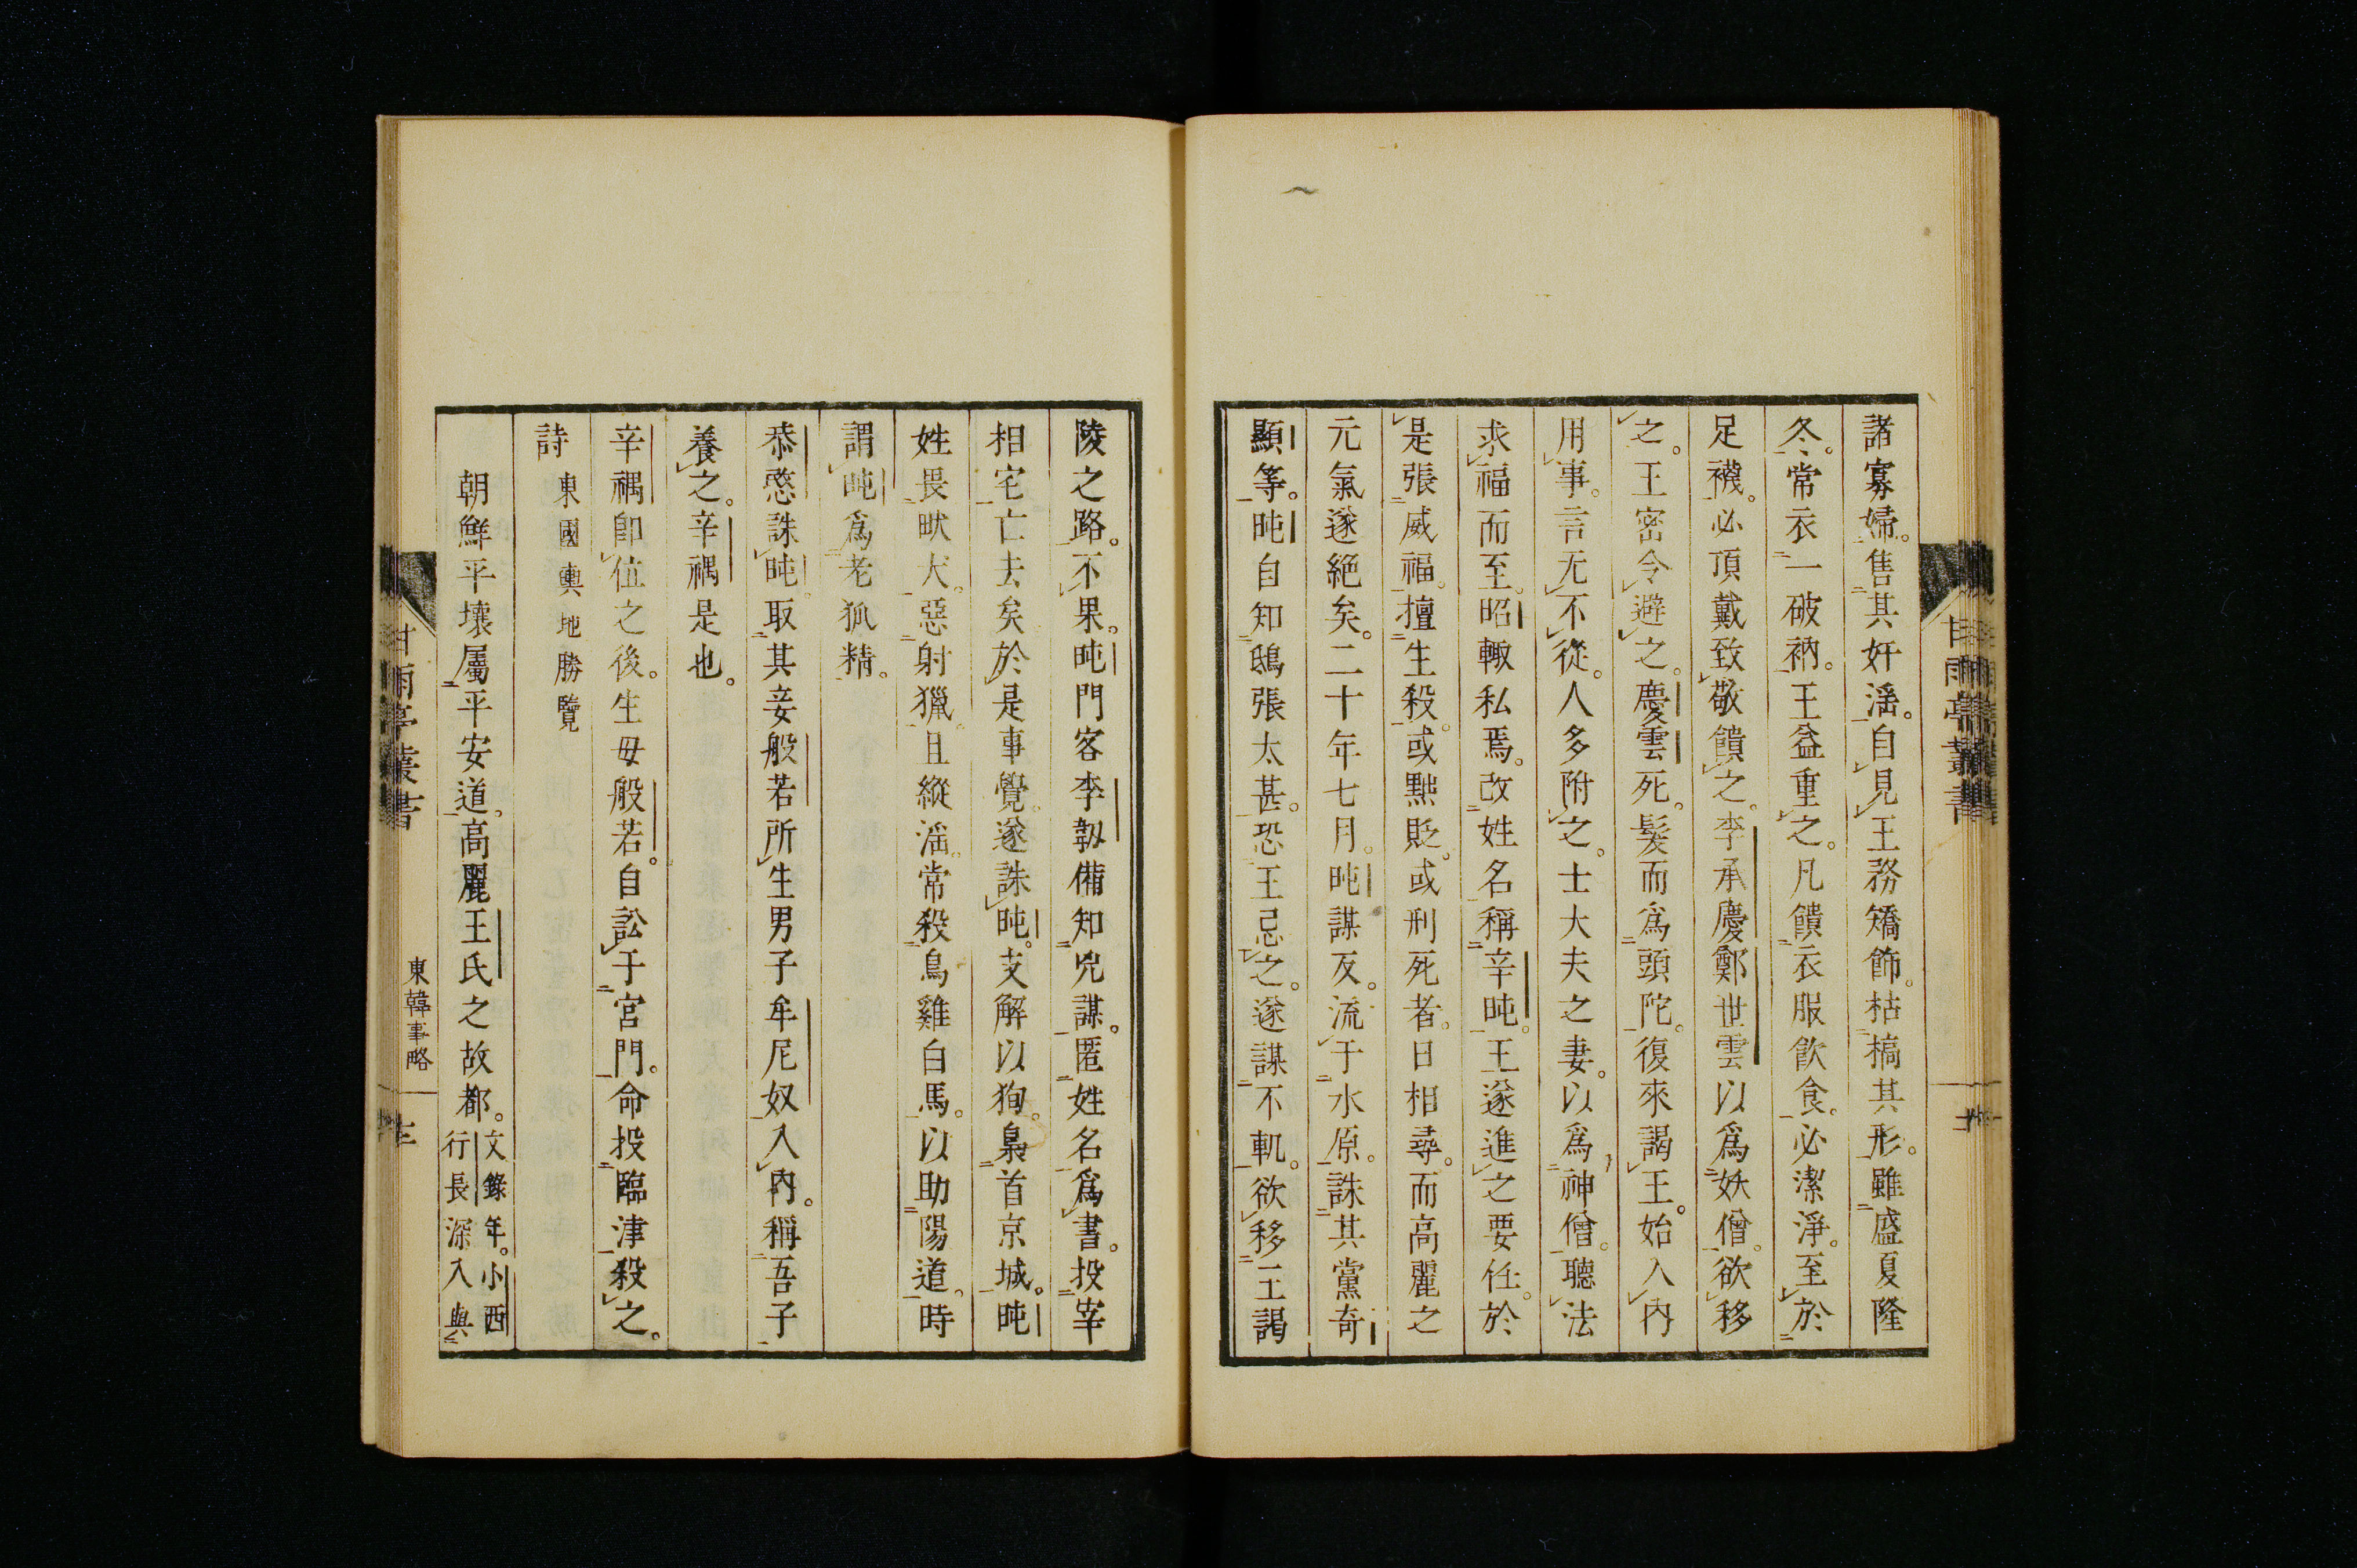 諸寡婦。售其奸滛。自見王務矯飾。枯槁其形。雖盛夏隆
冬。常衣一破衲。王益重之。凡饋衣服飲食。必潔淨。至於
足襪。必頂戴致敬饋之。李承慶鄭世雲以爲妖僧。欲移
之。王密令避之。慶雲死。髮而爲頭陀。復來謁王。始入内
用事。言无不從。人多附之。士大夫之妻。以爲神僧。聽法
求福而至。昭輙私焉。改姓名稱辛旽。王遂進之要任。於
是張威福。擅生殺。或黜貶。或刑死者。日相尋。而高麗之
元氣遂絕矣。二十年七月。旽謀反。流于水原。誅其黨奇
顯等。旽自知鴟張太甚。恐王忌之。遂謀不軌。欲移王謁
陵之路。不果。旽門客李韌備知兇謀。匿姓名爲書。投宰
相宅亡去矣於是事覺。遂誅旽。支解以狥。梟首京城。旽
姓畏畎犬。惡射獵。且縱滛。常殺烏雞白馬。以助陽道。時
謂旽爲老狐精。
恭愍誅旽。取其妾般若所生男子牟尼奴入内。稱吾子
養之。辛禑是也。
辛禑卽位之後。生母般若。自訟于宮門。命投臨津殺之。
詩 東國輿地勝覽
朝鮮平壤屬平安道。高麗王氏之故都。文錄年。小西
行長深入與
甘雨亭叢書
東韓事略
甘雨亭叢書